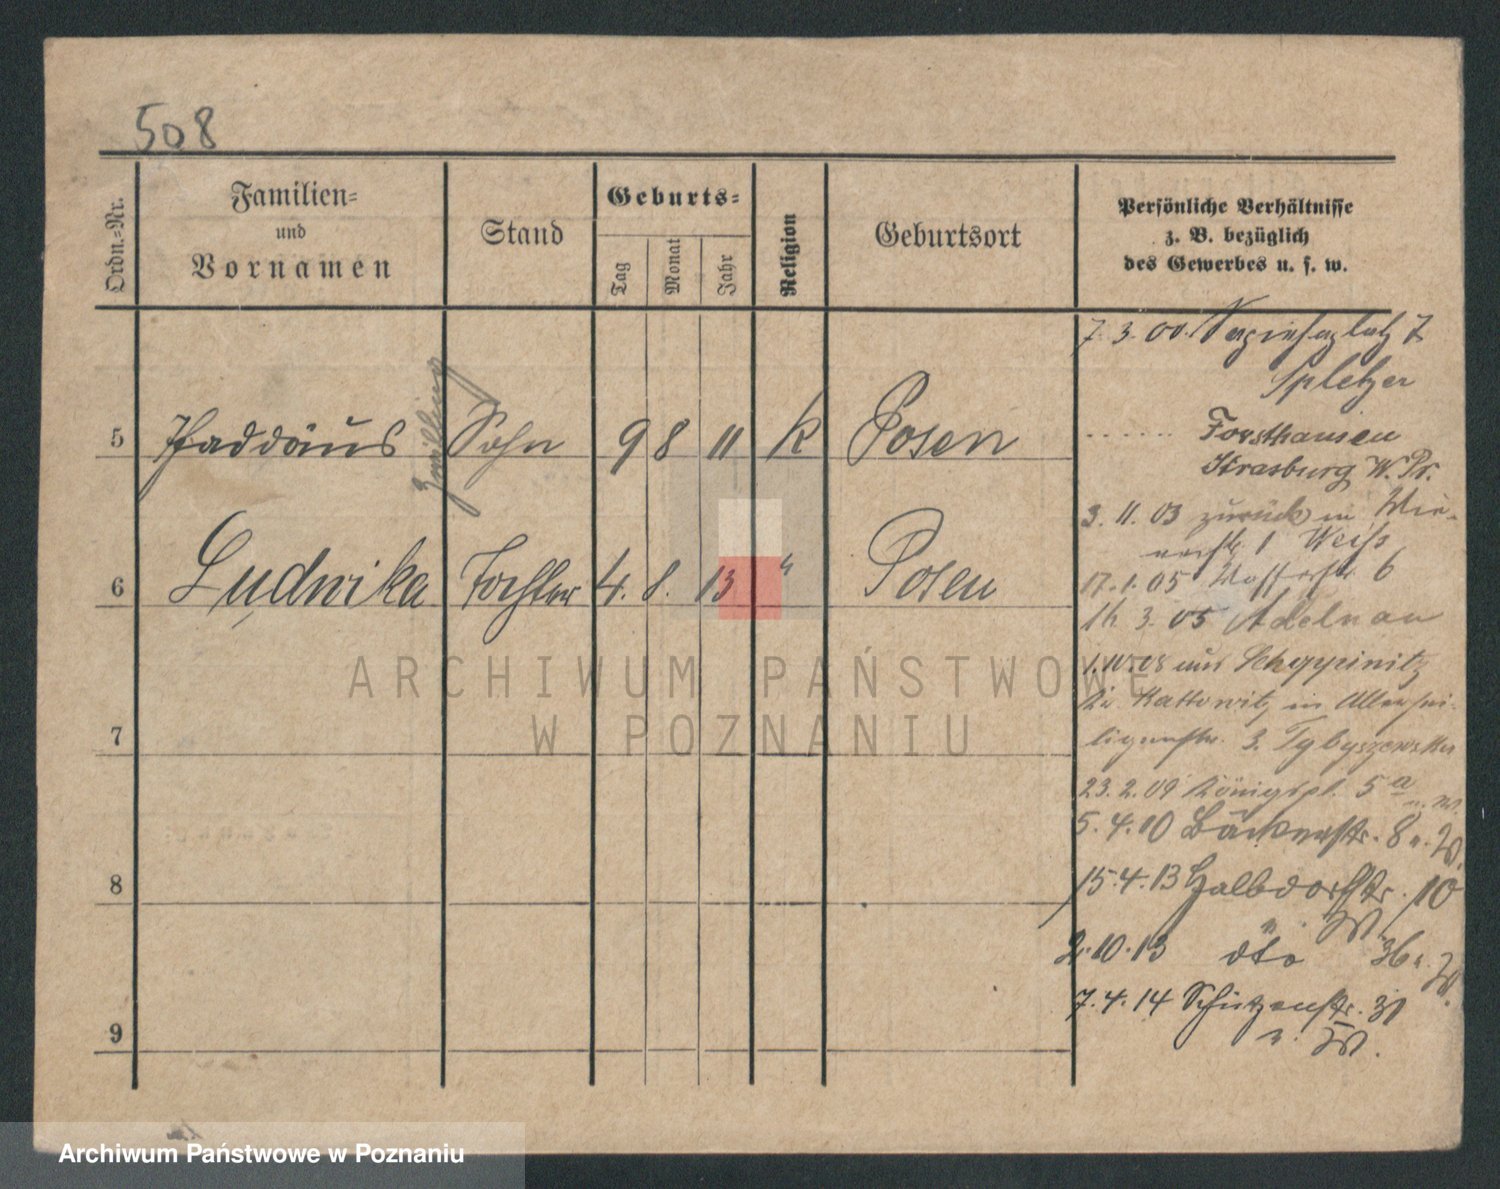 508
Ordn.-Nr.
Familien-
und
Vornamen
Stand
Geburts-
Tag
Monat
Jahr
Religion
Geburtsort
Persönliche Verhältnisse
z. B. bezüglich
des Gewerbes u. s. w.
7.3.00.
Spletzer
5 Thaddäus Zwilling Sohn 9 8 11 K Posen
Forsthausen
Strasburg W. Pr.
3.11.03 zurück in Wie-
nerstr. 1 Weiss
6 Ludwika Tochter 4. 8. 13 " Posen
17.1.05 Wasserstr. 6
14.3.05 Adelnau
1.10.08 aus Schoppinitz
Kr. Kattowitz in Allerhei-
ligenstr. 3. Tybyszewska
7
23.2.09 Königspl. 5 a
5.4.10 Bäckerstr. 8 n. W.
8
15.4.13 Halbdorfstr. 10
n. W.
2.10.13 dto 36 n. W.
7.4.14 Schützenstr. 31
n. W.
9
ARCHIWUM PAŃSTWOWE
W POZNANIU
Archiwum Państwowe w Poznaniu